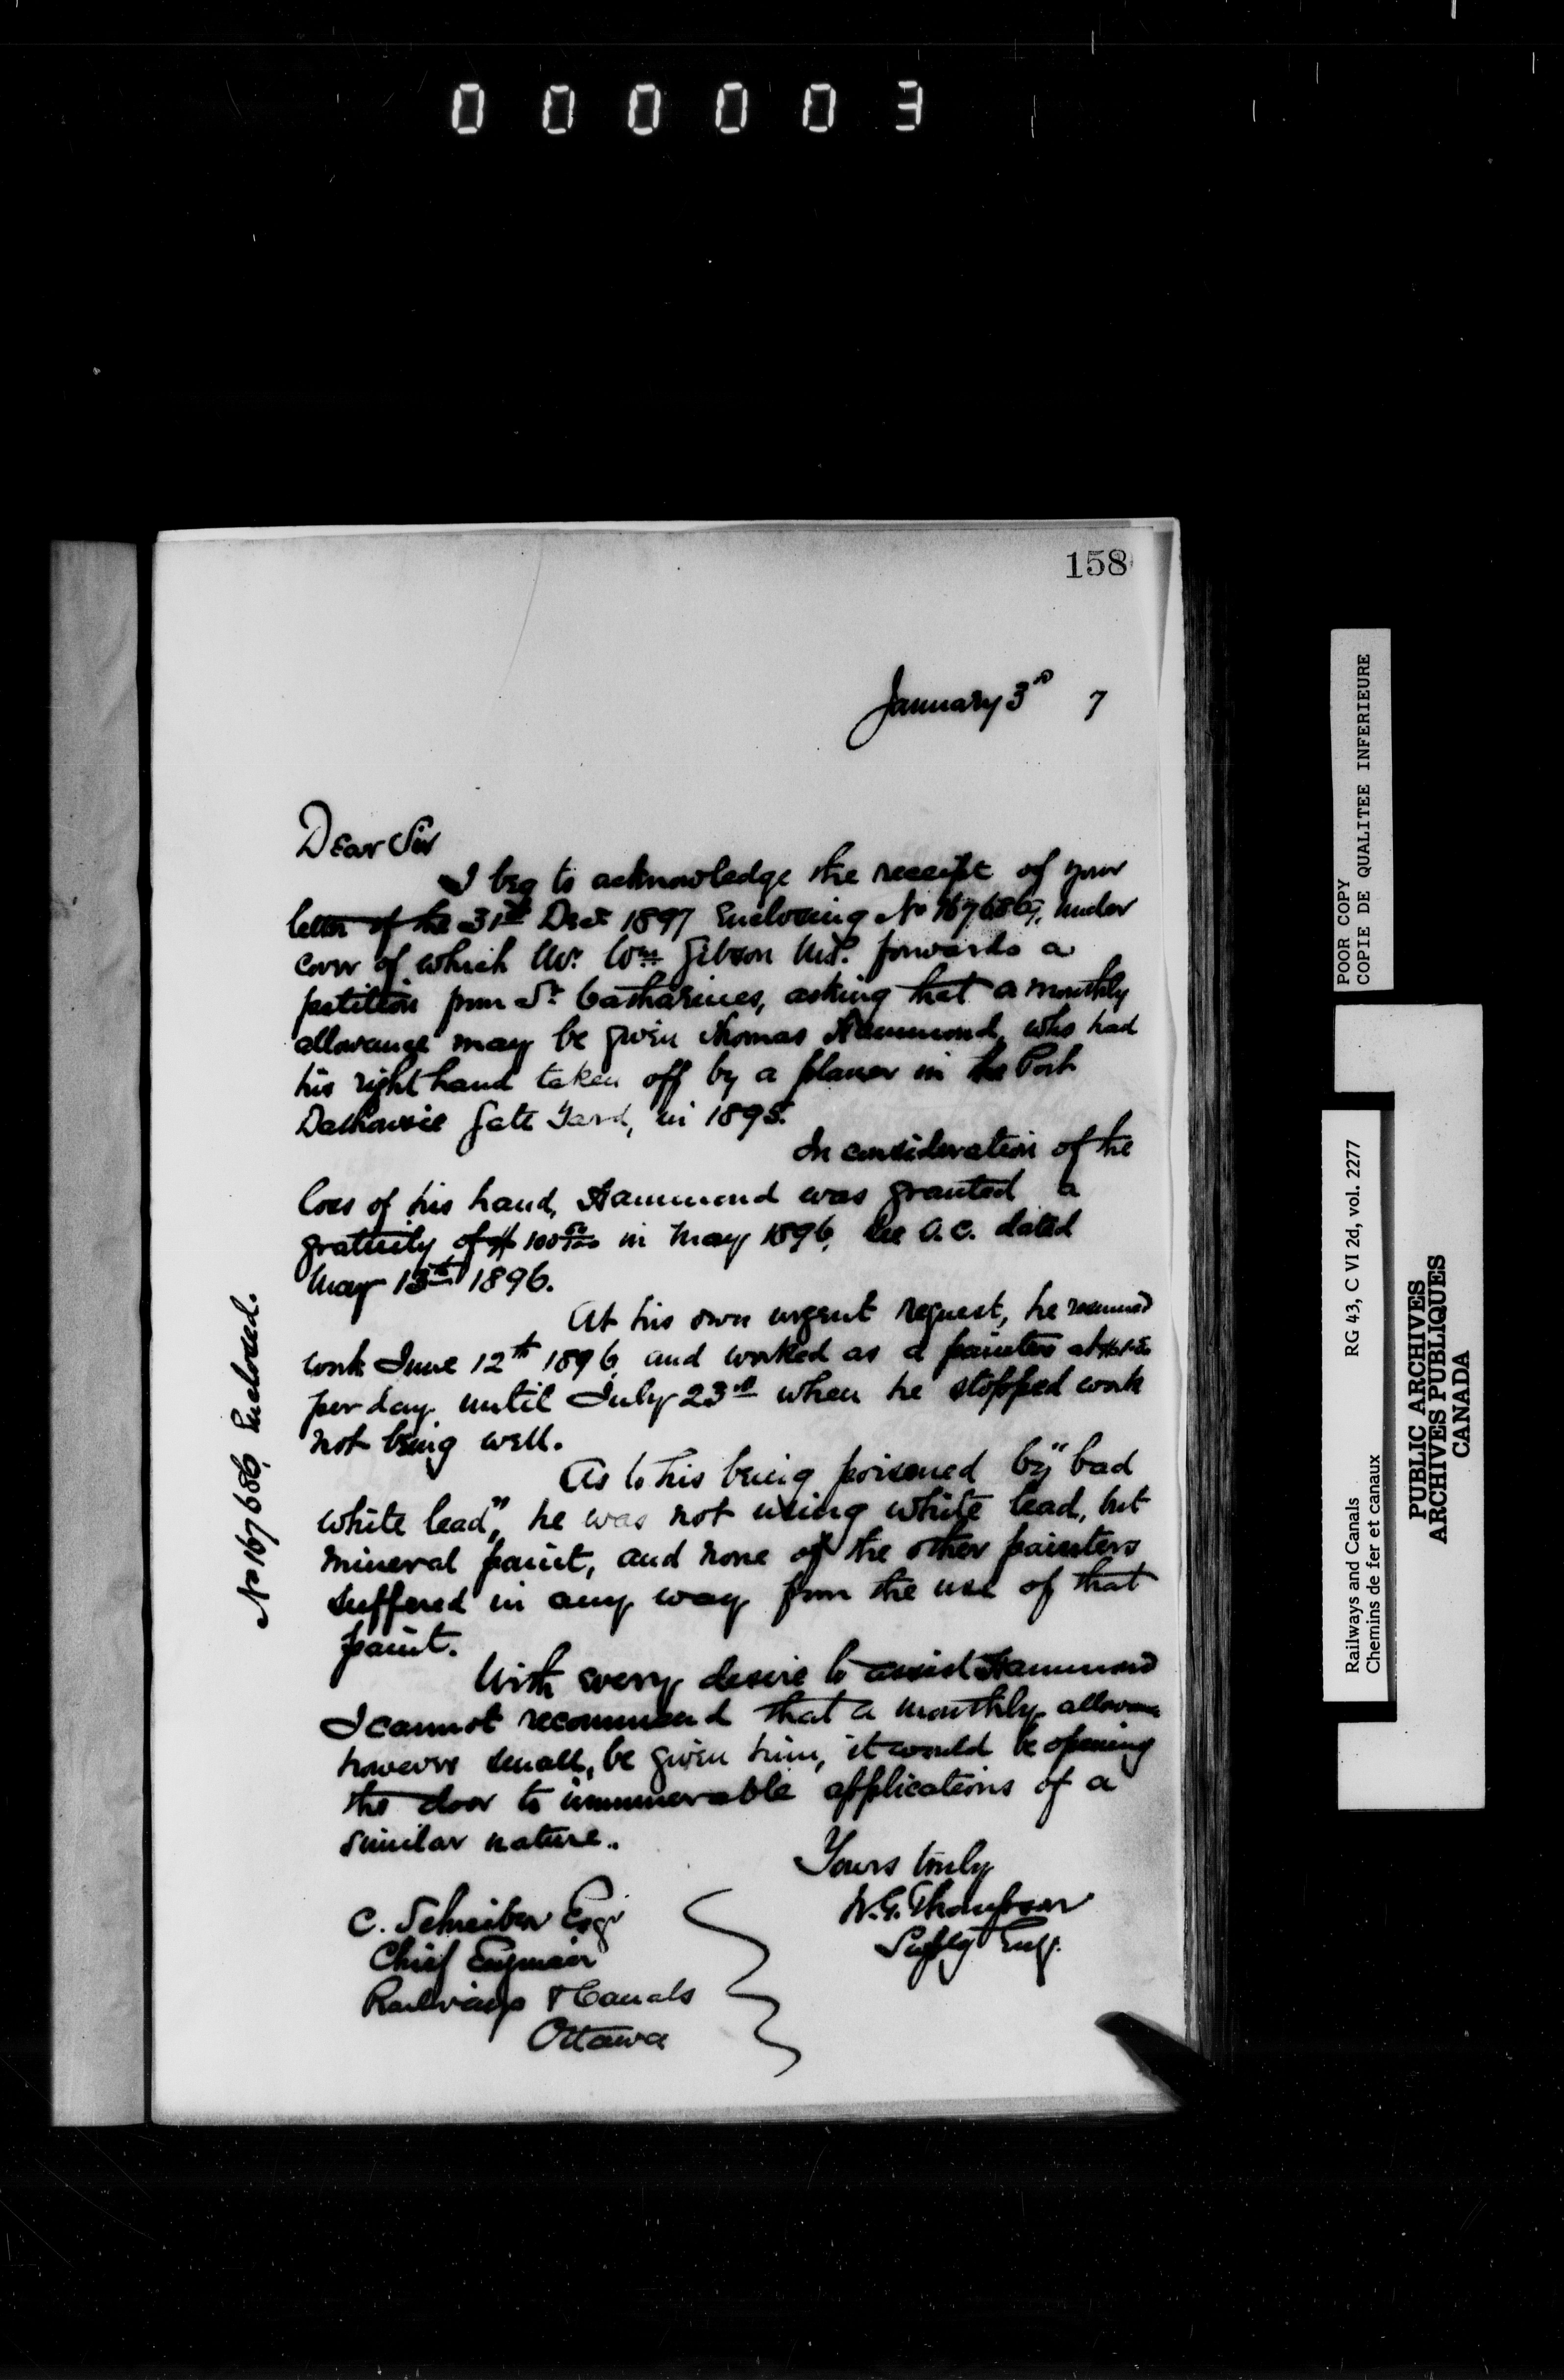 000003
158
January 3rd 7
Dear Sir
I beg to acknowledge the receipt of your
letter of the 31st Dec. 1897 Enclosing No 167686, under
cover of which Mr. Wm Gibson M.P. forwards a
petition from St. Catharines, asking that a monthly
allowance may be given Thomas Hammond, who had
his right hand taken off by a planer in the Port
Dalhousie Gate Yard, in 1895.
In consideration of the
loss of his hand, Hammond was granted a
gratuity of $100 in May 1896, See O.C. dated
May 13th 1896.
At his own urgent request, he resumed
work June 12th 1896, and worked as a painter at
per day until July 23rd when he stopped work
not being well.
As to his being poisoned by "bad
white lead", he was not using white lead, but
mineral paint, and none of the other painters
suffered in any way from the use of that
paint.
With every desire to assist Hammond
I cannot recommend that a monthly allowance
however small, be given him, it would be opening
the door to innumerable applications of a
similar nature.
Yours truly
W.G. Thompson
Suptg Engr.
C. Schreiber Esqr
Chief Engineer
Railways & Canals
Ottawa
No 167686 Enclosed.
POOR COPY
COPIE DE QUALITEE INFERIEURE
Railways and Canals RG 43, C VI 2d, vol. 2277
Chemins de fer et canaux
PUBLIC ARCHIVES
ARCHIVES PUBLIQUES
CANADA